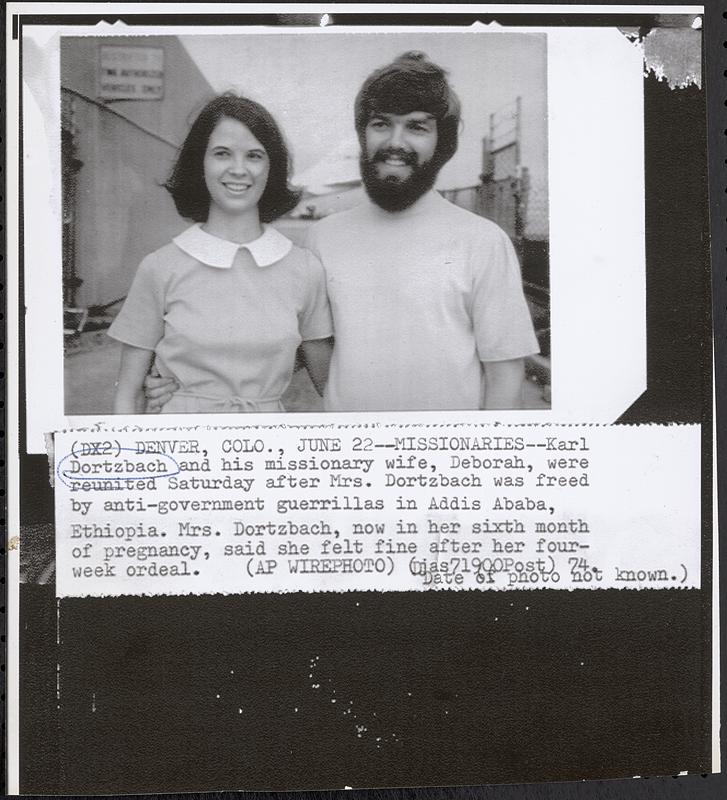 VEHICLES ONLY
(DX2) DENVER, COLO., JUNE 22--MISSIONARIES--Karl
Dortzbach and his missionary wife, Deborah, were
reunited Saturday after Mrs. Dortzbach was freed
by anti-government guerrillas in Addis Ababa,
Ethiopia. Mrs. Dortzbach, now in her sixth month
of pregnancy, said she felt fine after her four-
week ordeal. (AP WIREPHOTO) (mas71900Post) 74.
Date of photo not known.)